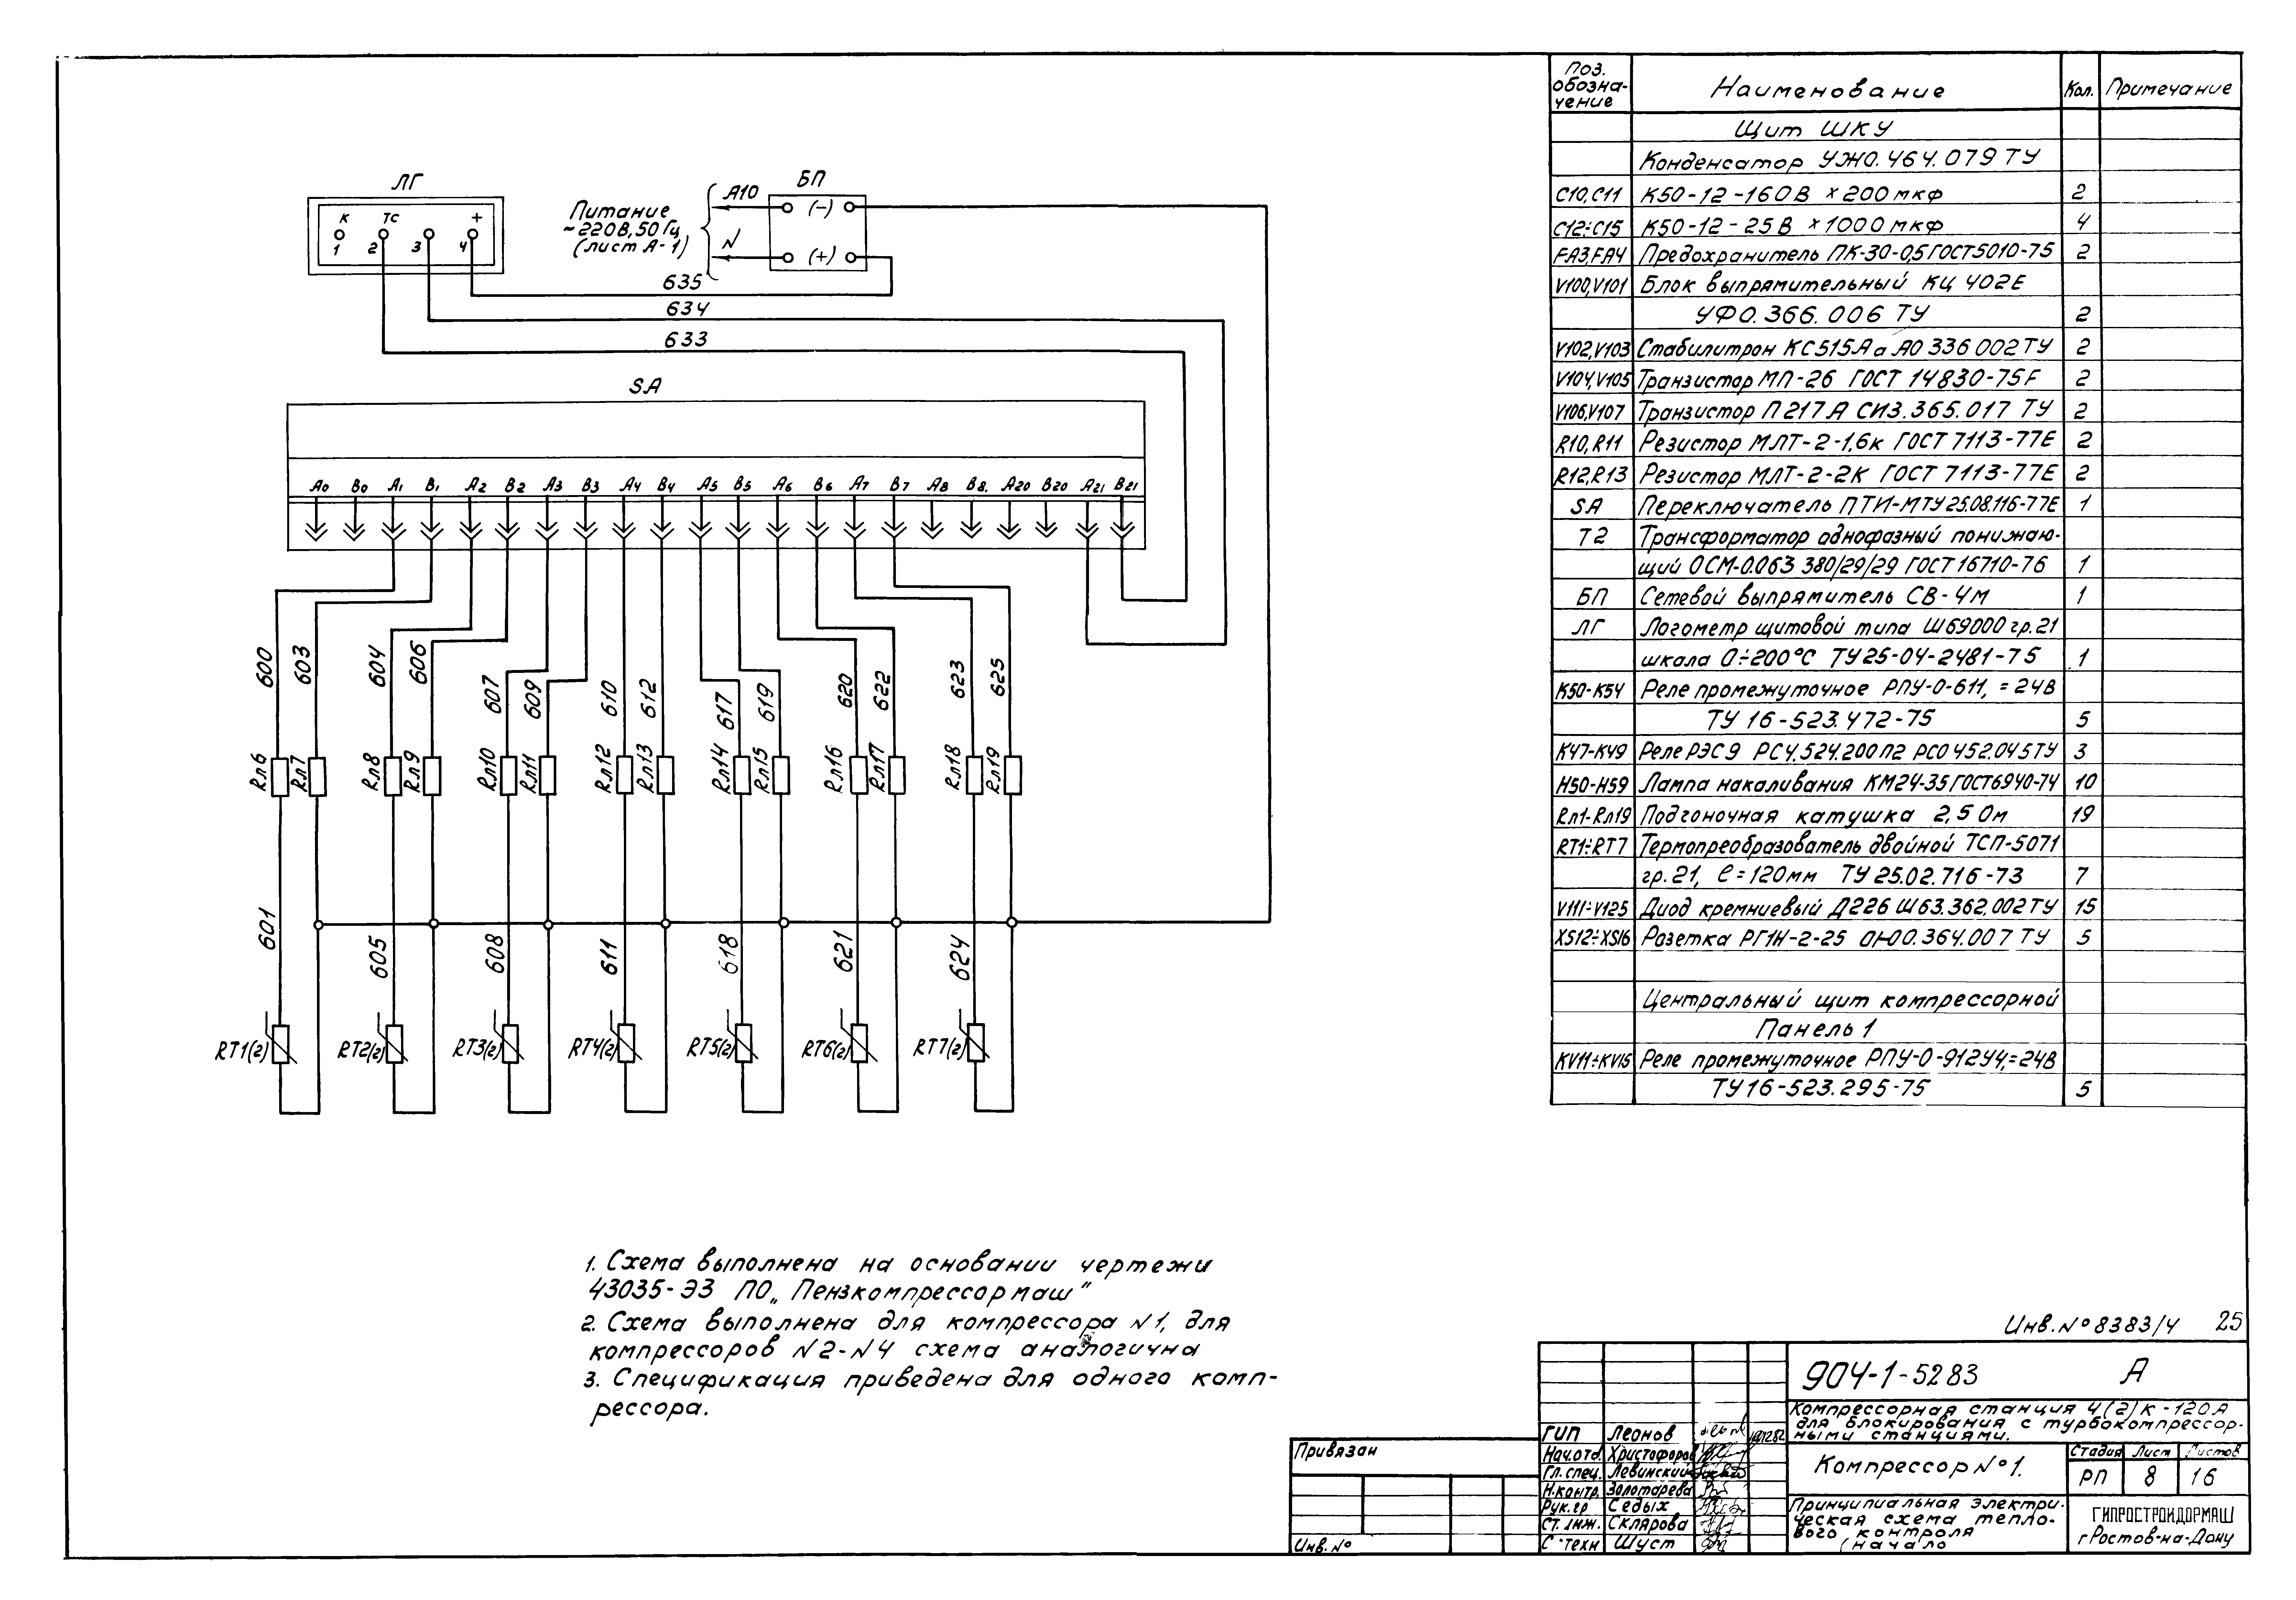 ЛГ
К ТС +
1 2 3 4
Питание
~220В, 50 Гц
(лист А-1)
А10
N
БП
(-)
(+)
635
634
633
SA
A0 B0 A1 B1 A2 B2 A3 B3 A4 B4 A5 B5 A6 B6 A7 B7 A8 B8. A20 B20 A21 B21
600 603 604 606 607 609 610 612 617 619 620 622 623 625
Rл6 Rл7 Rл8 Rл9 Rл10 Rл11 Rл12 Rл13 Rл14 Rл15 Rл16 Rл17 Rл18 Rл19
601 605 608 611 618 621 624
RT1(2) RT2(2) RT3(2) RT4(2) RT5(2) RT6(2) RT7(2)
1. Схема выполнена на основании чертежи
43035-ЭЗ ПО „Пензкомпрессормаш"
2. Схема выполнена для компрессора N1, для
компрессоров N2-N4 схема аналогична
3. Спецификация приведена для одного комп-
рессора.
Поз. обозна- чение Наименование Кол. Примечание
Щит ШКУ
Конденсатор УЖ0.464.079 ТУ
С10,С11 К50-12-160В х 200 мкф 2
С12÷С15 К50-12-25В х 1000 мкф 4
FA3,FA4 Предохранитель ПК-30-0,5 ГОСТ5010-75 2
V100,V101 Блок выпрямительный КЦ 402Е
УФ0.366.006 ТУ 2
V102,V103 Стабилитрон КС515А аА0 336 002 ТУ 2
V104,V105 Транзистор МП-26 ГОСТ 14830-75Е 2
V106,V107 Транзистор П217А СИ3.365.017 ТУ 2
R10,R11 Резистор МЛТ-2-1,6к ГОСТ 7113-77Е 2
R12,R13 Резистор МЛТ-2-2К ГОСТ 7113-77Е 2
SA Переключатель ПТИ-МТУ25.08.116-77Е 1
Т2 Трансформатор однофазный понижаю-
щий ОСМ-0.063 380/29/29 ГОСТ 16710-76 1
БП Сетевой выпрямитель СВ-4М 1
ЛГ Логометр щитовой типа Ш69000 гр.21
шкала 0÷200°С ТУ25-04-2481-75 1
К50-К54 Реле промежуточное РПУ-0-611, =24В
ТУ 16-523.472-75 5
К47-К49 Реле РЭС9 РС4.524.200П2 РС0 452.045ТУ 3
Н50-Н59 Лампа накаливания КМ24-35 ГОСТ6940-74 10
Rл1-Rл19 Подгоночная катушка 2,5 Ом 19
RT1÷RT7 Термопреобразователь двойной ТСП-5071
гр.21, ℓ=120мм ТУ 25.02.716-73 7
V111÷V125 Диод кремниевый Д226 Ш63.362.002 ТУ 15
XS12÷XS16 Розетка РГ1Н-2-25 ОЮ0.364.007 ТУ 5
Центральный щит компрессорной
Панель 1
KV11÷KV15 Реле промежуточное РПУ-0-912У4,=24В
ТУ16-523.295-75 5
Инв.№8383/4 25
904-1-5283 А
Компрессорная станция 4(2)К-120А
для блокирования с турбокомпрессор-
ными станциями.
ГИП Леонов
Нач.отд. Христофоров
Гл.спец. Левинский
Н.контр. Золотарева
Рук.гр Седых
Ст.инж. Склярова
С.техн Шуст
Компрессор №1.
Стадия Лист Листов
РП 8 16
Принципиальная электри-
ческая схема тепло-
вого контроля
(начало
ГИПРОСТРОЙДОРМАШ
г Ростов-на-Дону
Привязан
Инв.№